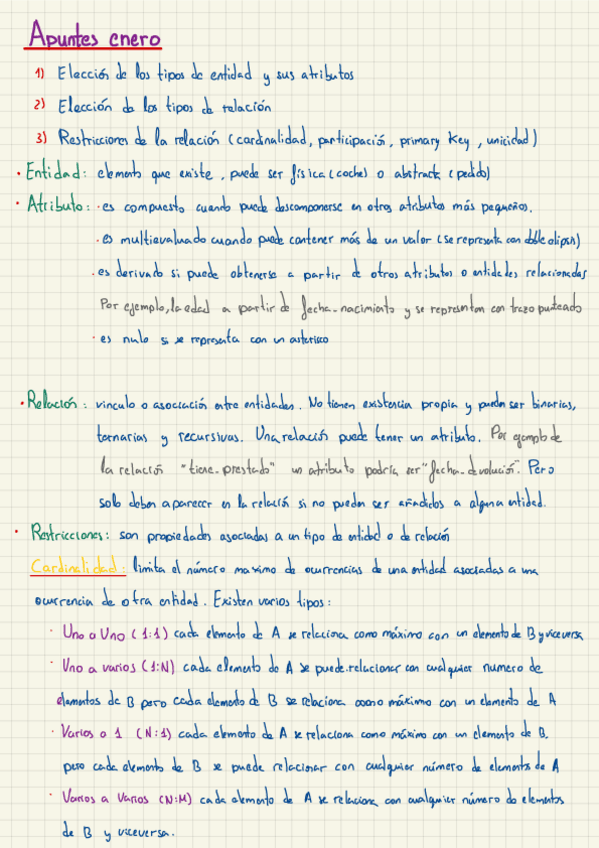 Apuntes enero
1) Elección de los tipos de entidad y sus atributos
2) Elección de los tipos de relación
3) Restricciones de la relación (cardinalidad, participación, primary key, unicidad)
· Entidad: elemento que existe, puede ser física (coche) o abstracta (pedido)
· Atributo: · es compuesto cuando puede descomponerse en otros atributos más pequeños.
· es multievaluado cuando puede contener más de un valor (se representa con doble elipse)
· es derivado si puede obtenerse a partir de otros atributos o entidades relacionadas
Por ejemplo, la edad a partir de fecha_nacimiento y se representan con trazo punteado
· es nulo si se representa con un asterisco
· Relación: vinculo o asociación entre entidades. No tienen existencia propia y pueden ser binarias,
ternarias y recursivas. Una relación puede tener un atributo. Por ejemplo de
la relación "tiene_prestado" un atributo podría ser "fecha_devolución". Pero
solo deben aparecer en la relación si no pueden ser añadidos a alguna entidad.
· Restricciones: son propiedades asociadas a un tipo de entidad o de relación
Cardinalidad: limita el número maximo de ocurrencias de una entidad asociadas a una
ocurrencia de otra entidad. Existen varios tipos:
· Uno a Uno (1:1) cada elemento de A se relaciona como máximo con un elemento de B y viceversa
· Uno a varios (1:N) cada elemento de A se puede relacionar con cualquier numero de
elementos de B pero cada elemento de B se relaciona como máximo con un elemento de A
· Varios a 1 (N:1) cada elemento de A se relaciona como máximo con un elemento de B,
pero cada elemento de B se puede relacionar con cualquier número de elementos de A
· Varios a Varios (N:M) cada elemento de A se relaciona con cualquier número de elementos
de B y viceversa.